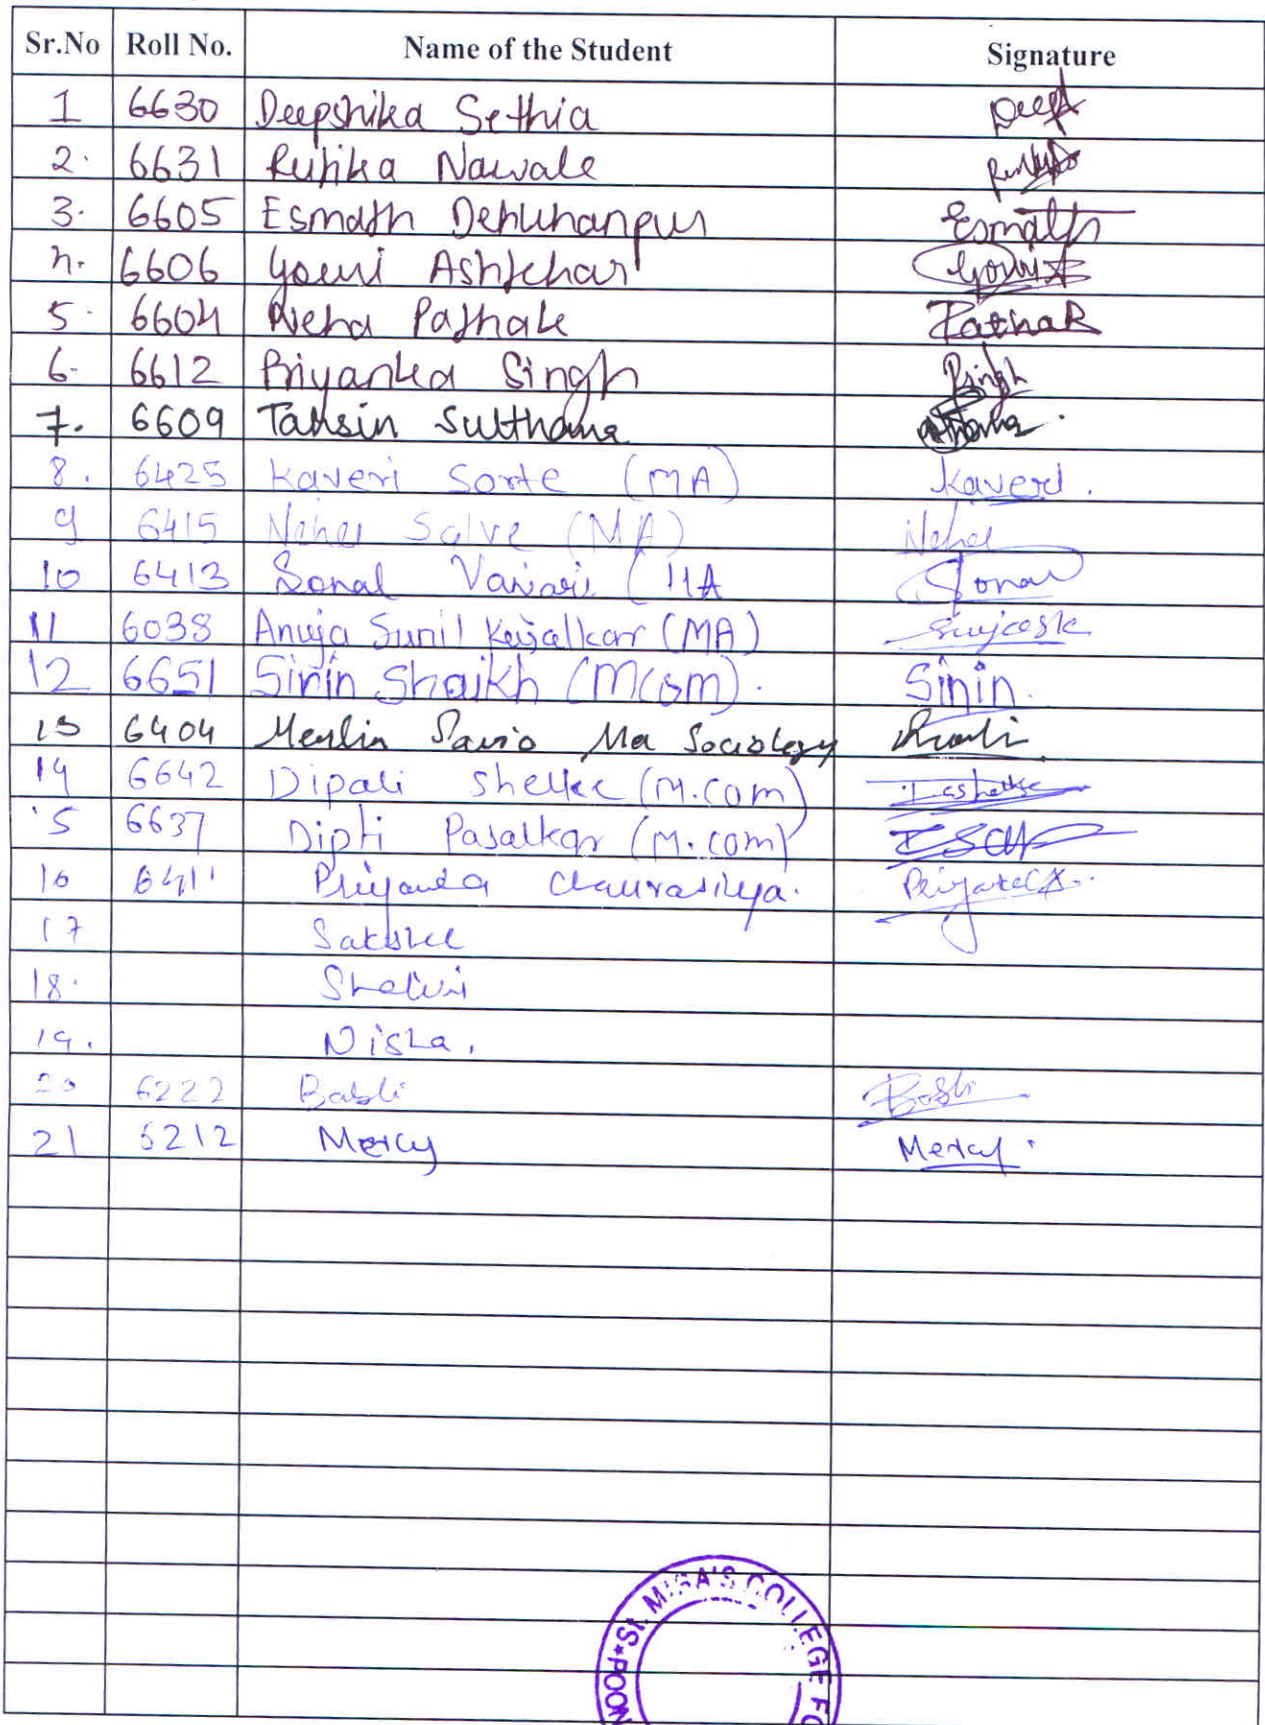 Sr.No Roll No. Name of the Student Signature
1 6630 Deepshika Sethia Deept
2. 6631 Rutika Nawale
3. 6605 Esmath Dehuhanpur Esmath
4. 6606 Gouri Ashtekar Gouri
5. 6604 Neha Pathak Pathak
6. 6612 Priyanka Singh Psingh
7. 6609 Tahsin Sulthana
8. 6425 Kaveri Sorte (MA) Kaveri.
9 6415 Neha Salve (MA) Neha
10 6413 Sonal (MA Sonal
11 6038 Anuja Sunil (MA)
12 6651 Sirin Shaikh (Mcom). Sirin.
13 6404 Merlin Ma Sociology
14 6642 Dipali Shelke (M.com)
15 6637 Dipti Pasalkar (M.com)
16 6411 Priyanka Chaurasiya.
17 Sakshee
18.
19. Nisha.
20 6222 Babli
21 6212 Mercy Mercy.
POON★St. MIRA'S COLLEGE FO